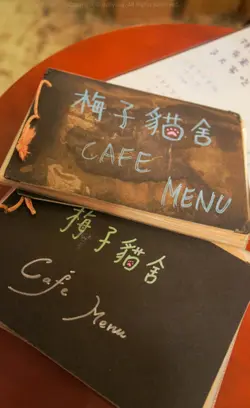 梅子貓舍
CAFE
MENU
梅子貓舍
Café Menu